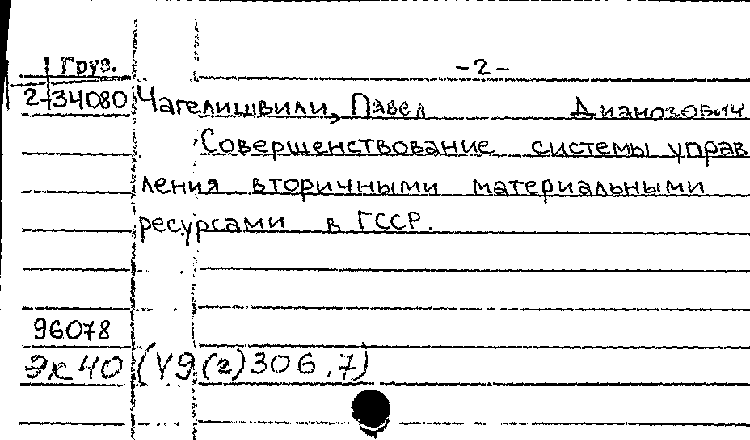 Груз. -2-
2-34080 Чагелишвили, Павел Дианозович
Совершенствование системы управ
ления вторичными материальными
ресурсами в ГССР.
96078
Эк40 (У9(2)306.7)